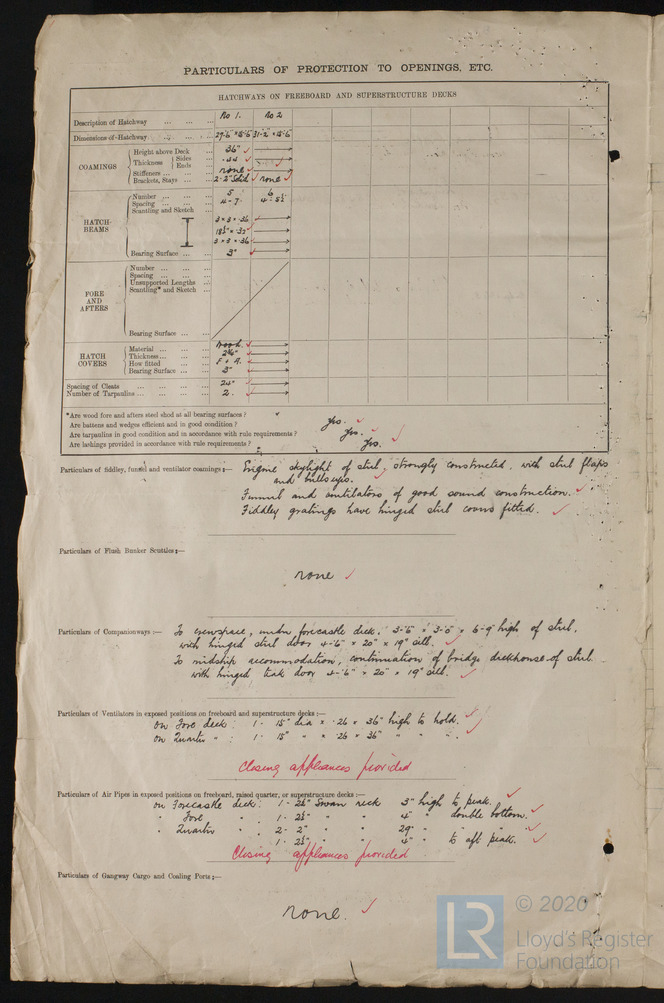 PARTICULARS OF PROTECTION TO OPENINGS, ETC.
HATCHWAYS ON FREEBOARD AND SUPERSTRUCTURE DECKS
Description of Hatchway ... ... ... No 1. No 2
Dimensions of Hatchway ... ... ... 29'-6" × 15'-6 31'-2" × 15'-6"
COAMINGS
Height above Deck 36"
Thickness { Sides .44
Ends
Stiffeners ... ... none
Brackets, Stays ... ... none
HATCH-BEAMS
Number ... ... ... 5 6
Spacing ... ... ... 4-7 4-5½
Scantling and Sketch
3 × 3 × .36
3 × 3 × .36
Bearing Surface ... ... 3"
FORE AND AFTERS
Number ... ... ...
Spacing ... ... ...
Unsupported Lengths ...
Scantling* and Sketch ...
Bearing Surface ... ...
HATCH COVERS
Material ... ... ... Wood.
Thickness ... ... ...
How fitted ... ... F & A.
Bearing Surface ... ... 3"
Spacing of Cleats ... ... ... ... 24"
Number of Tarpaulins ... ... ... ... 2.
*Are wood fore and afters steel shod at all bearing surfaces ?
Are battens and wedges efficient and in good condition ? Yes.
Are tarpaulins in good condition and in accordance with rule requirements ? Yes.
Are lashings provided in accordance with rule requirements ? Yes.
Particulars of fiddley, funnel and ventilator coamings :— Engine skylight of steel, strongly constructed, with steel flaps
and bullseyes.
Funnel and ventilators of good sound construction.
Fiddley gratings have hinged steel covers fitted.
Particulars of Flush Bunker Scuttles :—
none
Particulars of Companionways :— To crewspace, under forecastle deck, 3'-6" × 3'-0" × 6'-9" high of steel,
with hinged steel door 4'-6" × 20" × 19" sill.
To midship accommodation, continuation of bridge deckhouse of steel
with hinged teak door 4'-6" × 20" × 19" sill.
Particulars of Ventilators in exposed positions on freeboard and superstructure decks :—
On Fore deck : 1 - 15" dia × .26 × 36" high to hold.
On Quarter " : 1 - 15" " × .26 × 36" " " "
Closing appliances provided
Particulars of Air Pipes in exposed positions on freeboard, raised quarter, or superstructure decks :—
On Forecastle deck : 1 - 2½" Swan neck 3" high to peak.
" Fore " . 1 - 2½" " " 4" " double bottom.
" Quarter " . 2 - 2" " " 29" " "
1 - 2½" " " 4" " to aft peak.
Closing appliances provided
Particulars of Gangway Cargo and Coaling Ports :—
none.
LR
© 2020
Lloyd's Register
Foundation